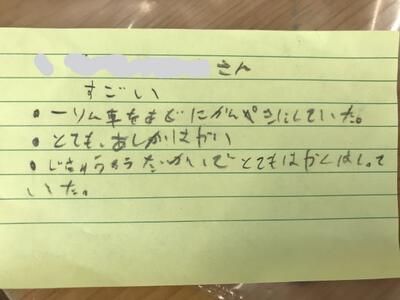 さん
すごい
・一りん車をにかんぺきにしていた。
・とても、あしがはやい
・じきゅうそうたいかいでとてもはやくはしって
いた。